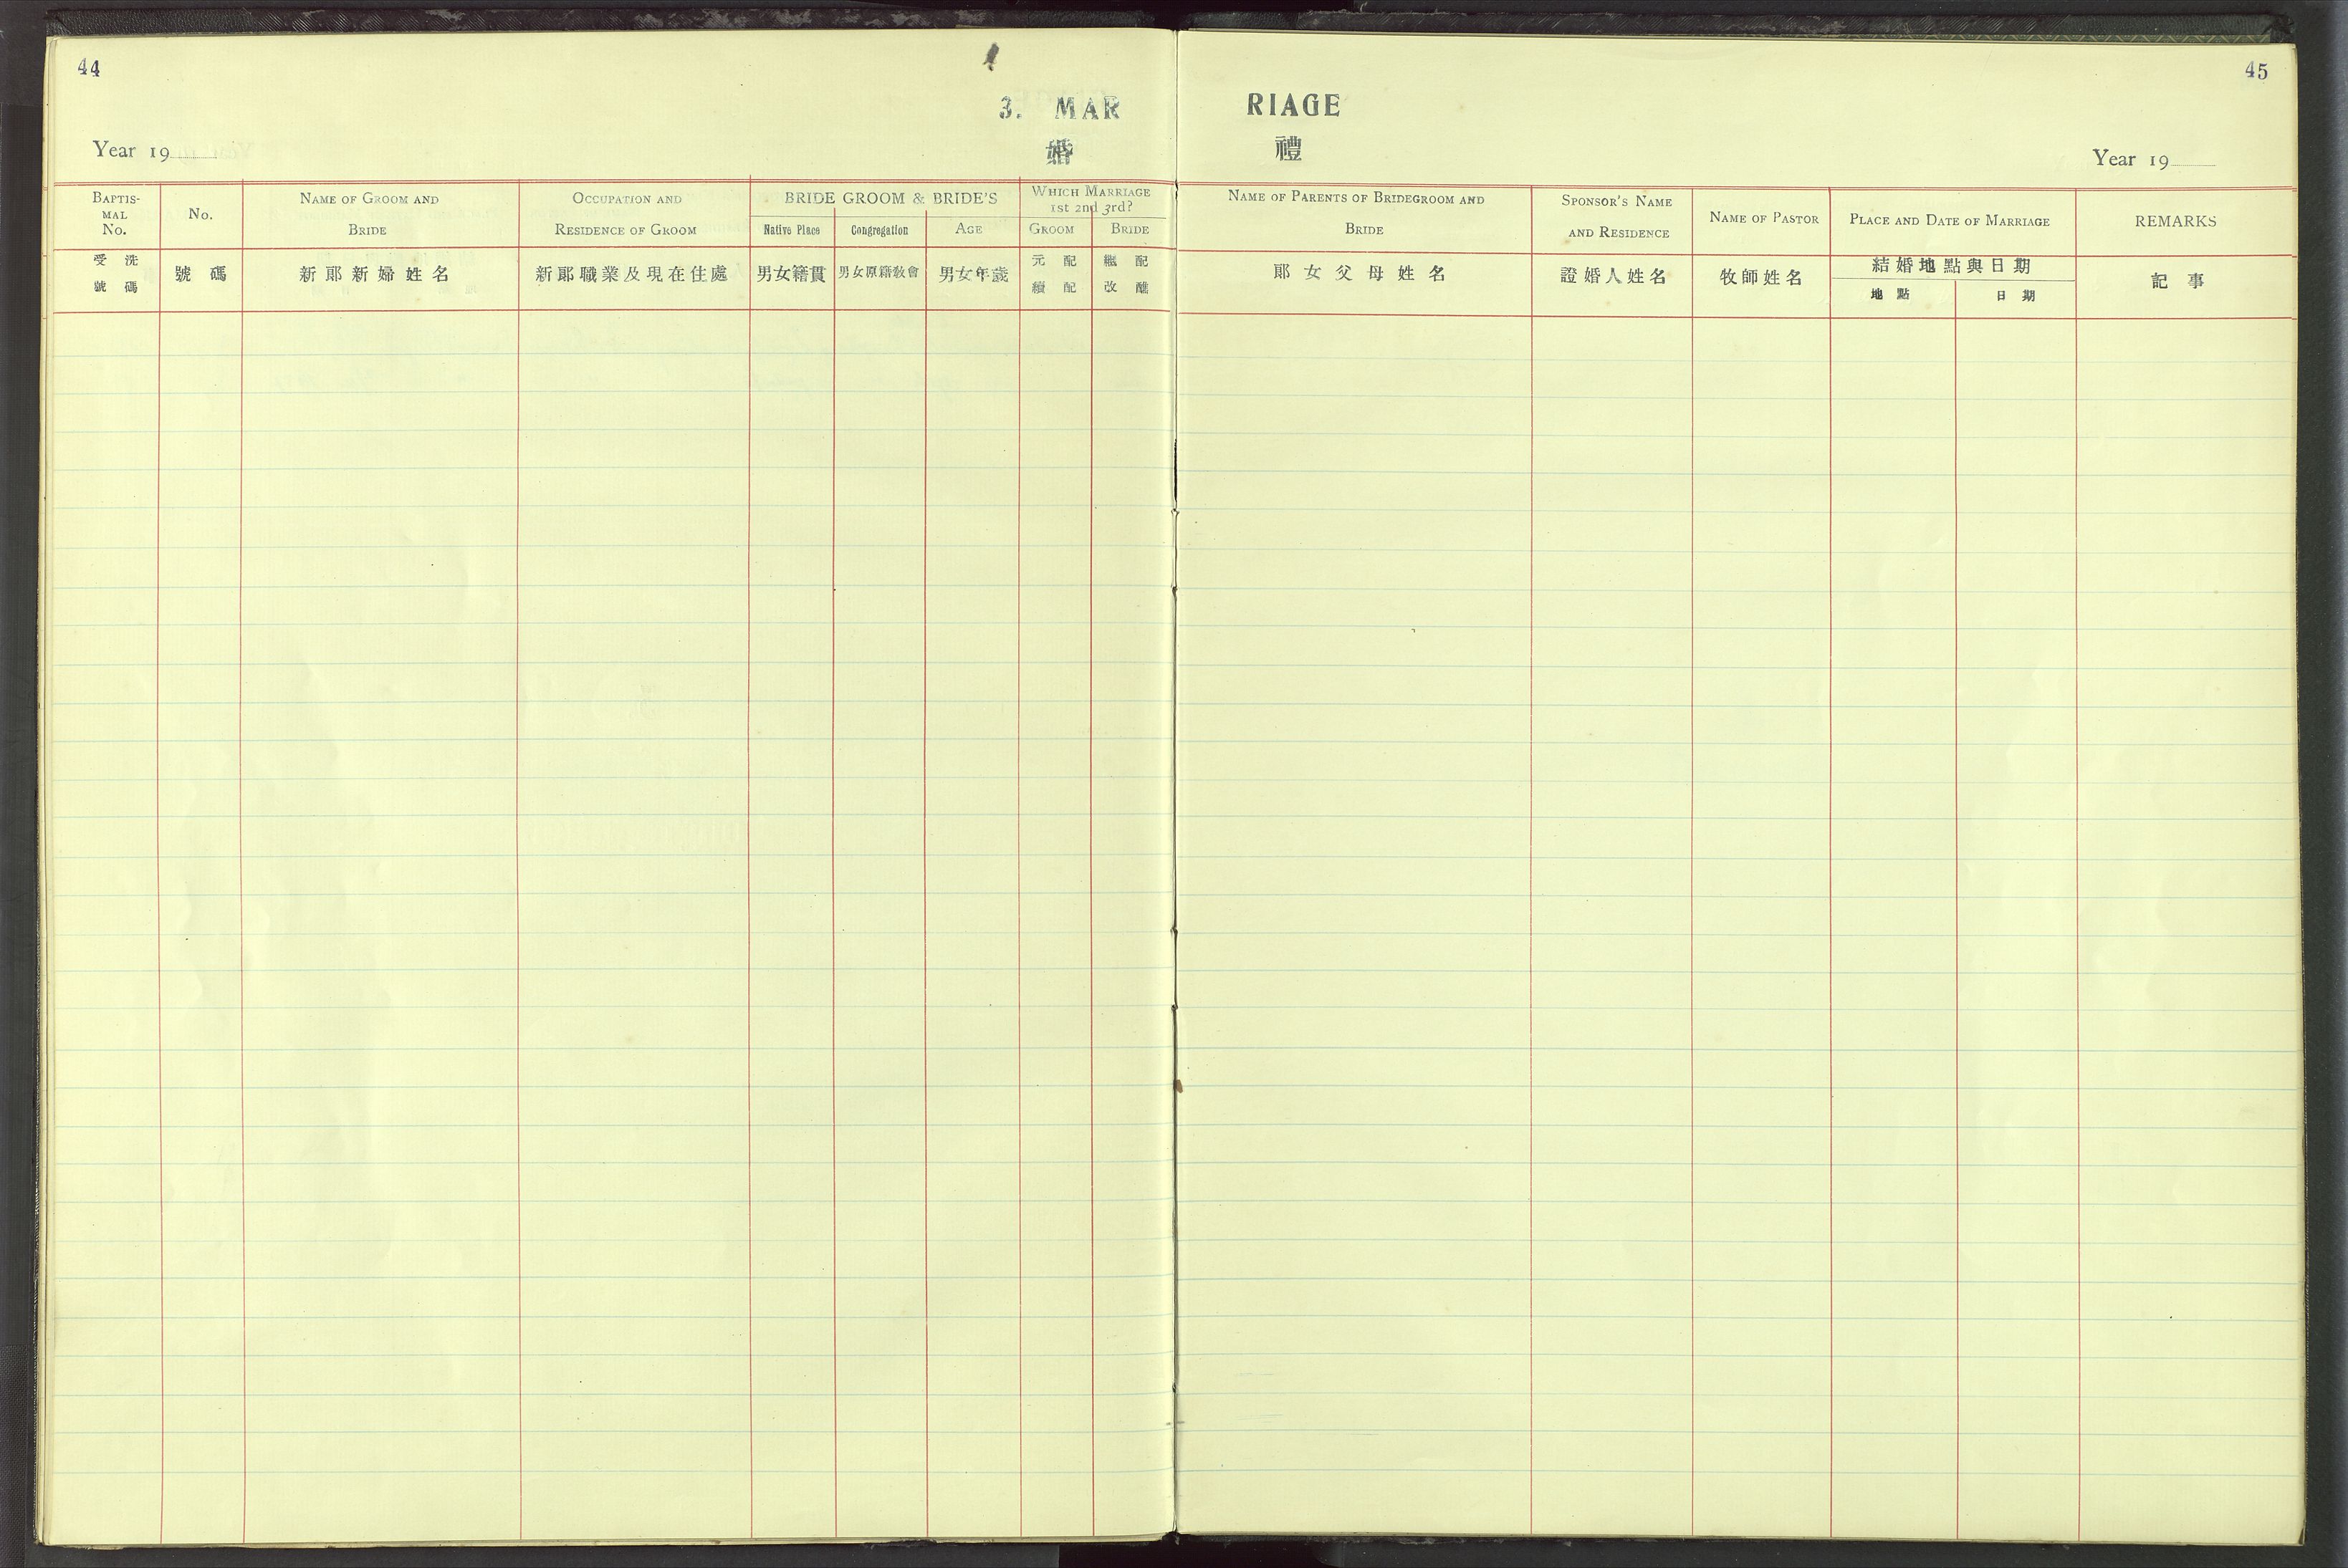 44
3. MAR
婚
Year 19
BAPTIS-
MAL
No.
No.
NAME OF GROOM AND
BRIDE
OCCUPATION AND
RESIDENCE OF GROOM
BRIDE GROOM & BRIDE'S
Native Place
Congregation
AGE
WHICH MARRIAGE
1st 2nd 3rd?
GROOM
BRIDE
受洗
號碼
號碼
新郎新婦姓名
新郎職業及現在住處
男女籍貫
男女原籍敎會
男女年歲
元配
續配
繼配
改醮
45
RIAGE
禮
Year 19
NAME OF PARENTS OF BRIDEGROOM AND
BRIDE
SPONSOR'S NAME
AND RESIDENCE
NAME OF PASTOR
PLACE AND DATE OF MARRIAGE
REMARKS
郎女父母姓名
證婚人姓名
牧師姓名
結婚地點與日期
地點
日期
記事